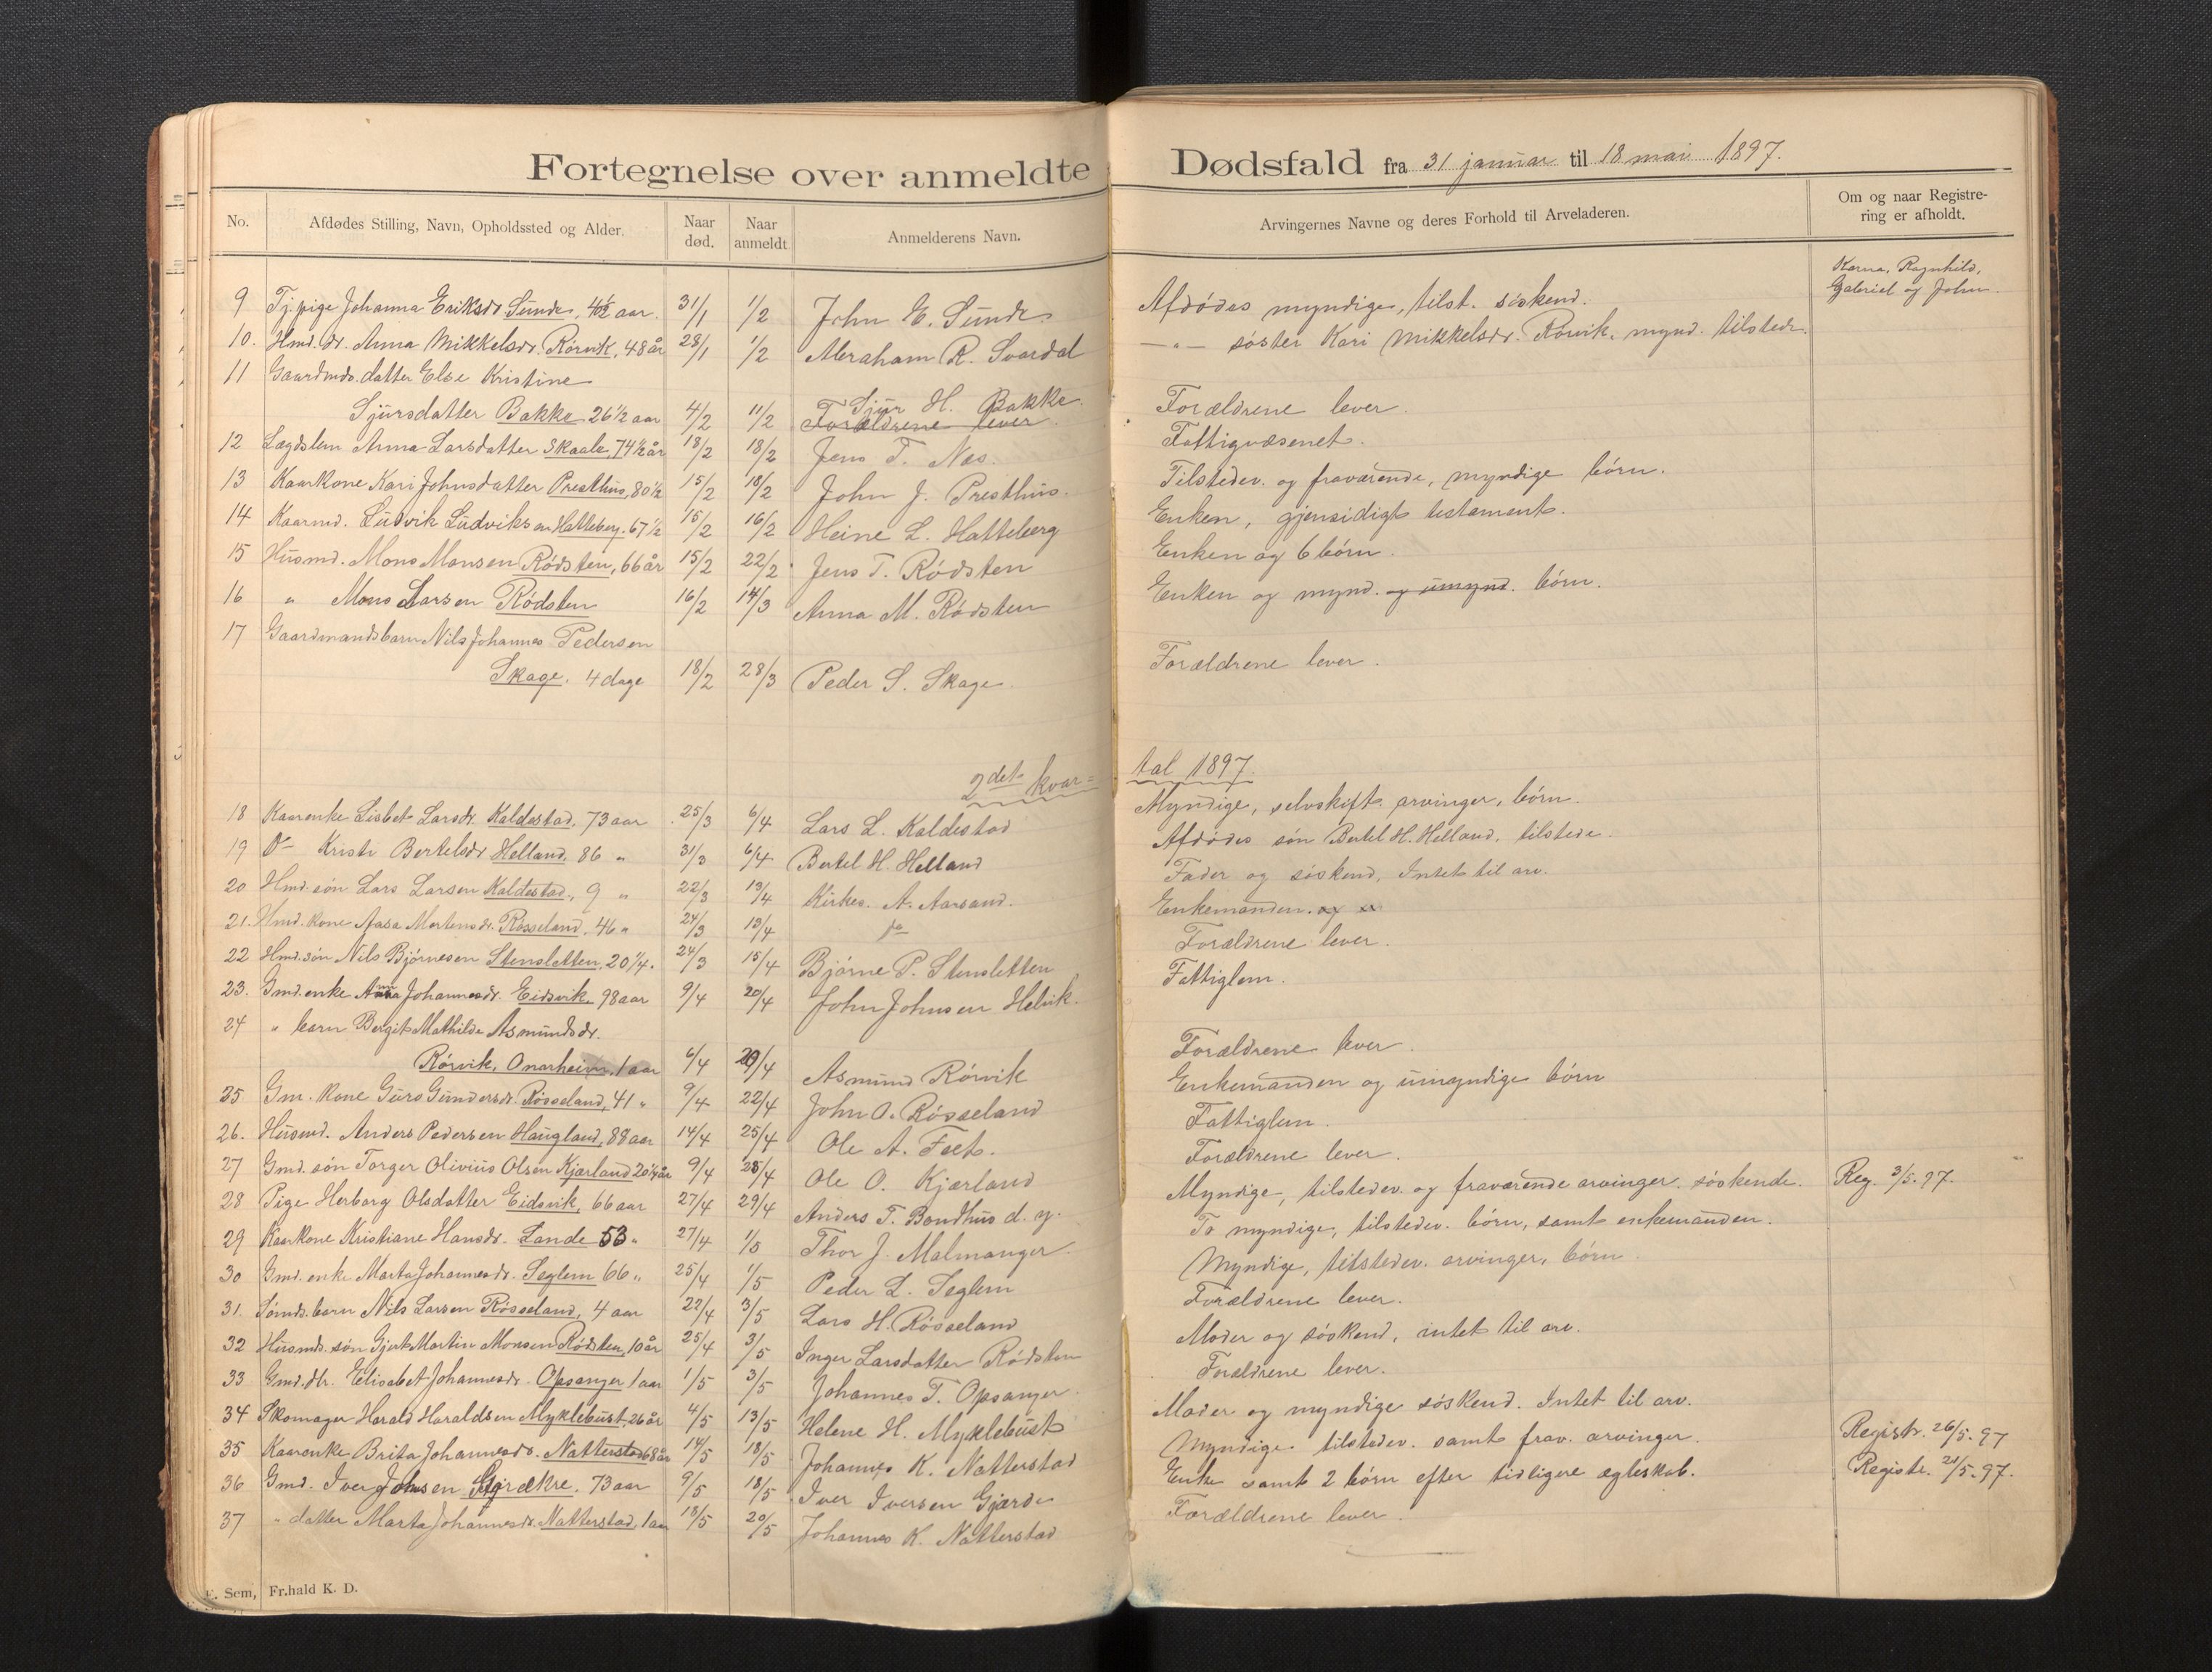 Fortegnelse over anmeldte Dødsfald fra 31 januar til 18 mai 1897.
No. Afdødes Stilling, Navn, Opholdssted og Alder. Naar død. Naar anmeldt Anmelderens Navn. Arvingernes Navne og deres Forhold til Arveladeren. Om og naar Registrering er afholdt.
Karna, Ragnhild,
Gabriel og John.
9 Tj.pige Johanna Eriksdr. Sunde, 4½ aar. 31/1 1/2 John E. Sunde Afdødes myndige, tilst. søskend.
10. Hmd. dr. Anna Mikkelsdr. Rørvik, 48 år 28/1 1/2 Abraham R. Svardal —"— søster Kari Mikkelsdr. Rørvik, mynd. tilstede.
11 Gaardmds. datter Else Kristine
Sjursdatter Bakke 26½ aar 4/2 11/2 Sjur H. Bakke. Forældrene lever.
Forældrene lever
12 Lægdslem Anna Larsdatter Skaale, 74½ år 18/2 18/2 Jens T. Næs. Fattigvæsenet.
13 Kaarkone Kari Johnsdatter Presthus, 80½ 15/2 18/2 John J. Presthus. Tilstedev. og fraværende, myndige børn.
14 Kaarmd. Ludvik Ludviksen Hatteberg. 67½ 15/2 16/2 Heine L. Hatteberg Enken, gjensidigt testament.
15 Husmd. Mons Monsen Rødsten, 66 år 15/2 22/2 Jens T. Rødsten Enken og 6 børn.
16 " Mons Larsen Rødsten 16/2 14/3 Anna M. Rødsten Enken og mynd. og umynd. børn.
17 Gaardmandsbarn Nils Johannes Pedersen
Skage. 4 dage 18/2 28/3 Peder S. Skage. Forældrene lever.
2det kvartal 1897.
18 Kaarenke Lisbet Larsdr. Kaldestad, 73 aar 25/3 6/4 Lars L. Kaldestad Myndige, selvskift. arvinger, børn.
19 Do Kristi Bertelsdr Helland, 86 " 31/3 6/4 Bertel H. Helland Afdødes søn Bertel H. Helland, tilstede.
20 Hmd. søn Lars Larsen Kaldestad, 9 " 22/3 13/4 Kirkes. A. Aarsand. Fader og søskend, Intet til arv.
21. Hmd. kone Aasa Mortensdr. Røsseland, 46 " 24/3 13/4 do Enkemanden. og
22 Hmd. søn Nils Bjørnesen Stensletten, 20¼. 24/3 15/4 Bjørne P. Stensletten Forældrene lever.
23. Gmd. enke Anna Johannesdr. Eidsvik 98 aar 9/4 20/4 John Johnsen Helvik. Fattiglem.
24 " barn Bergit Mathilde Asmundsdr.
Rørvik, Onarheim, 1 aar 6/4 20/4 Asmund Rørvik Forældrene lever.
25 Gm. kone Guro Gundersdr. Røsseland, 41 " 9/4 22/4 John O. Røsseland Enkemanden og umyndige børn
26. Husmd. Anders Pedersen Haugland, 88 aar 14/4 25/4 Ole A. Fæt. Fattiglem.
27 Gmd. søn Torger Olivius Olsen Kjærland 20¼ år 9/4 25/4 Ole O. Kjærland Forældrene lever.
28 Pige Herborg Olsdatter Eidsvik, 66 aar 27/4 29/4 Anders T. Bondhus d. y. Myndige, tilstedev. og fraværende arvinger. søskende. Reg. 3/5. 97.
29 Kaarkone Kristiane Hansdr. Lande 53 " 27/4 1/5 Thor J. Malmanger To myndige, tilstedev. børn, samt enkemanden.
30 Gmd. enke Marta Johannesdr. Seglem 66 " 25/4 1/5 Peder L. Seglem Myndige, tilstedev. arvinger, børn.
31. Sømds. barn Nils Larsen Røsseland, 4 aar 22/4 3/5 Lars H. Røsseland Forældrene lever.
32 Husmds. søn Gjert Martin Monsen Rødsten, 10 år 25/4 3/5 Inger Larsdatter Rødsten Moder og søskend, intet til arv.
33 Gmd. dtr. Elisabet Johannesdr. Opsanger 1 aar 1/5 3/5 Johannes T. Opsanger Forældrene lever.
34 Skomager Harald Haraldsen Myklebust, 26 år 4/5 13/5 Helene H. Myklebust Moder og myndige søskend. Intet til arv.
35 Kaarenke Brita Johannesdr. Natterstad 68 år 14/5 18/5 Johannes K. Natterstad Myndige tilstedev. samt frav. arvinger. Registr. 26/5. 97
36 Gmd. Iver Johnsen Gjærde. 73 aar 9/5 18/5 Iver Iversen Gjærde Enke samt 2 børn efter tidligere ægteskab. Registr. 21/5. 97.
37 " datter Marta Johannesdr. Natterstad, 1 aar 18/5 20/5 Johannes K. Natterstad Forældrene lever.
E. Sem, Fr.hald K. D.